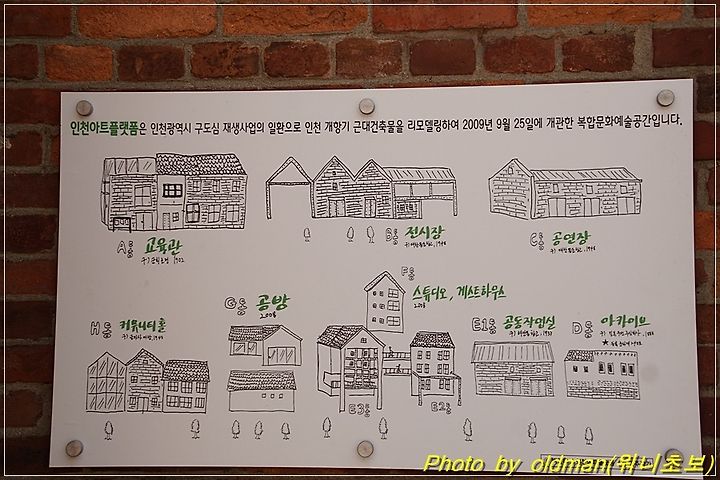 인천아트플랫폼은 인천광역시 구도심 재생사업의 일환으로 인천 개항기 근대건축물을 리모델링하여 2009년 9월 25일에 개관한 복합문화예술공간입니다.
A동 교육관
B동 전시장
C동 공연장
F동
스튜디오, 게스트하우스
H동 커뮤니티홀
G동 공방
2008
E1동 공동작업실
D동 아카이브
E3동
E2동
Photo by oldman(워니초보)